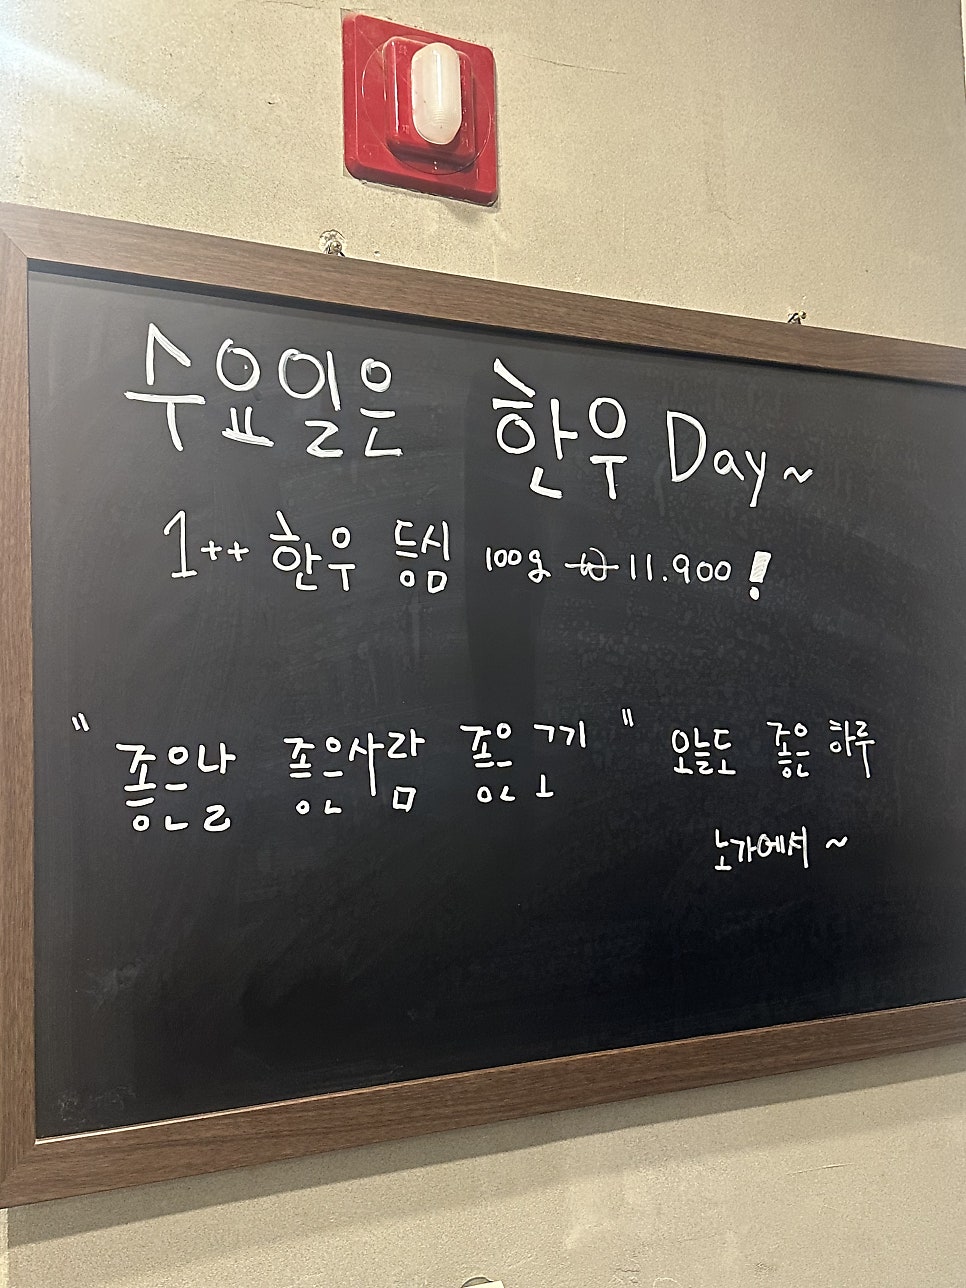 수요일은 한우 Day~
1++ 한우 등심 100g ₩11.900!
"좋은날 좋은사람 좋은 고기" 오늘도 좋은 하루
노가에서~